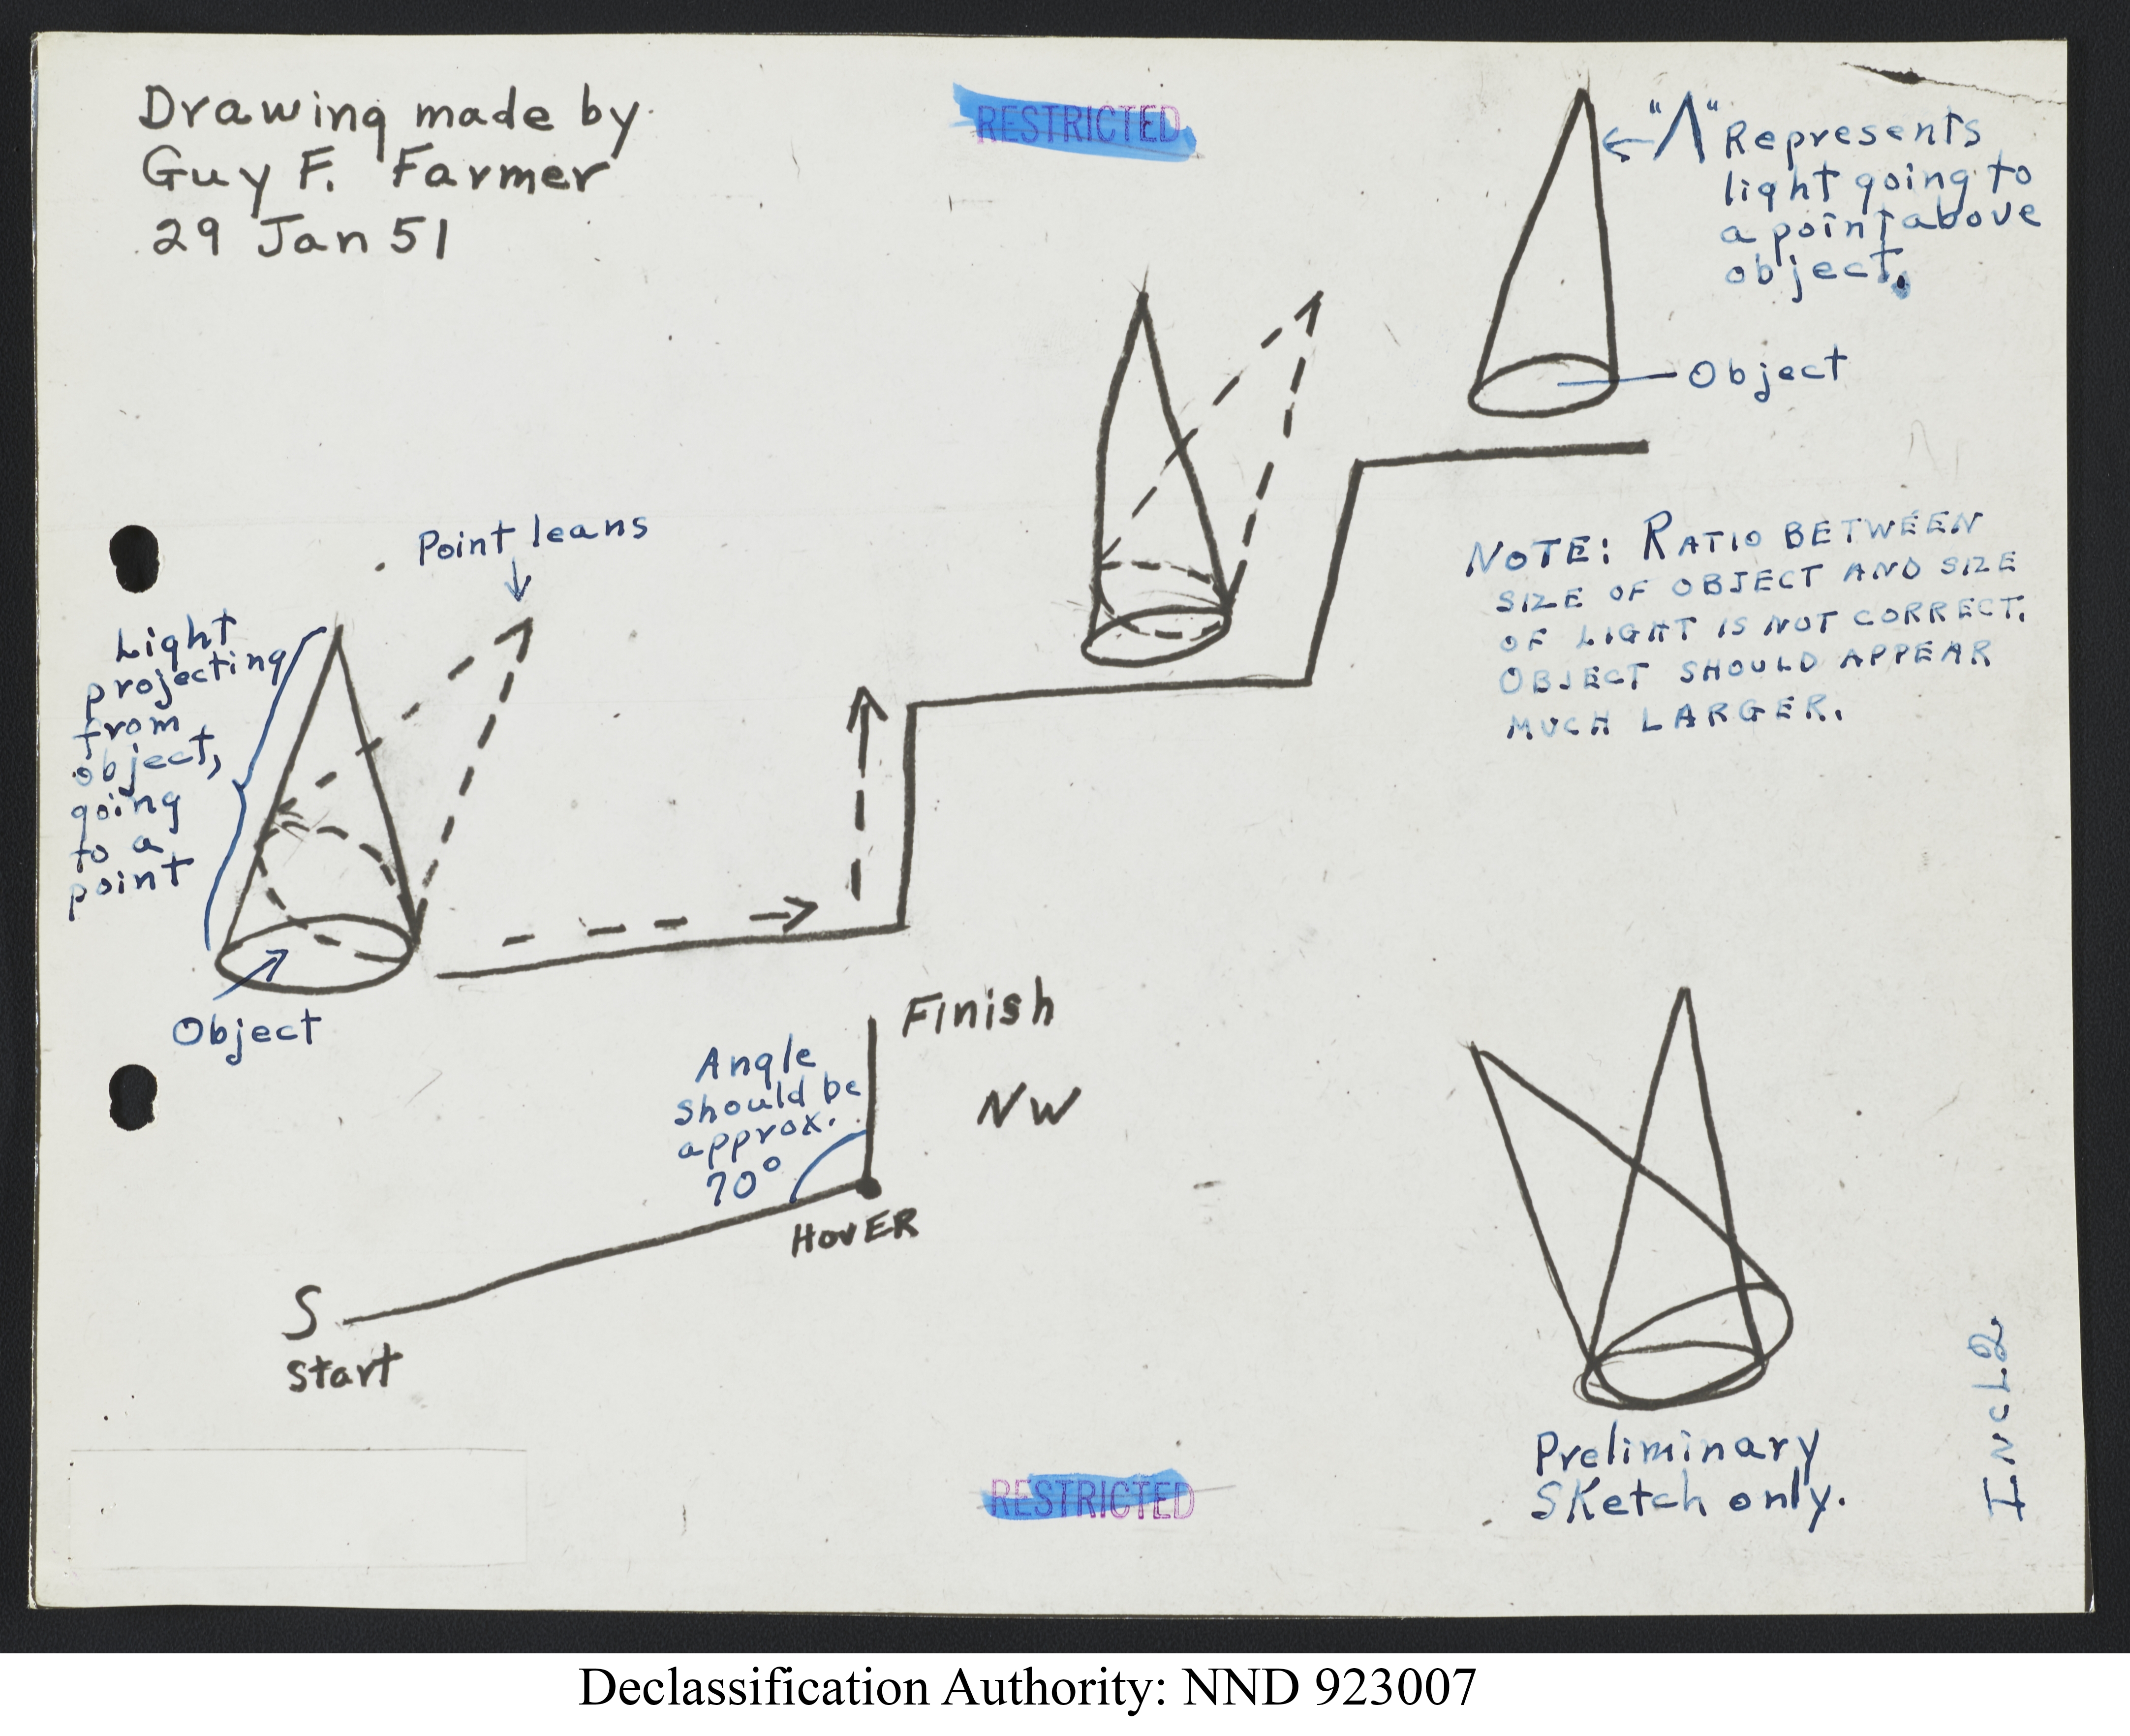 Drawing made by
Guy F. Farmer
29 Jan 51
RESTRICTED
"Λ" Represents
light going to
a point above
object.
Object
Point leans
Light
projecting
from
object,
going
to a
point
Object
NOTE: RATIO BETWEEN
SIZE OF OBJECT AND SIZE
OF LIGHT IS NOT CORRECT.
OBJECT SHOULD APPEAR
MUCH LARGER.
Finish
NW
Angle
should be
approx.
70°
HOVER
S
Start
Preliminary
Sketch only.
INCL 2
RESTRICTED
Declassification Authority: NND 923007